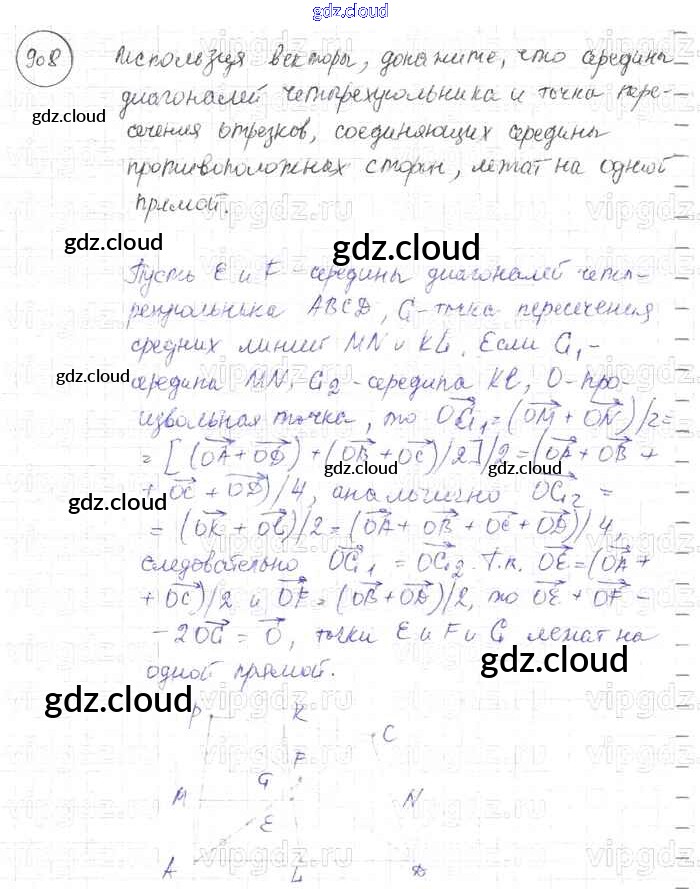 gdz.cloud
908 Используя векторы, докажите, что середины
диагоналей четырехугольника и точка пере-
gdz.cloud
сечения отрезков, соединяющих середины
противоположных сторон, лежат на одной
прямой.
gdz.cloud gdz.cloud
Пусть E и F - середины диагоналей четы-
рехугольника ABCD, G - точка пересечения
средних линий MN и KL. Если G₁ -
gdz.cloud
середина MN, G₂ - середина KL, O - про-
извольная точка, то OG₁ = (OM + ON)/2 =
= [(OA + OD) + (OB + OC)/2]/2 = (OA + OB +
gdz.cloud gdz.cloud
+ OC + OD)/4, аналогично OG₂ =
gdz.cloud
= (OK + OL)/2 = (OA + OB + OC + OD)/4,
следовательно OG₁ = OG₂. Т.к. OE = (OA +
+ OC)/2 и OF = (OB + OD)/2, то OE + OF -
- 2OG = O, точки E и F и G лежат на
gdz.cloud
одной прямой.
gdz.cloud
K
C
F
G
M N
E
A L D
gdz.cloud